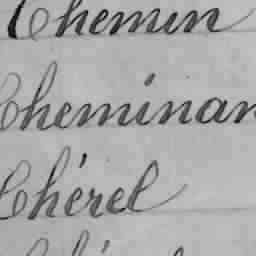 Chemin
Cheminan
Chérel